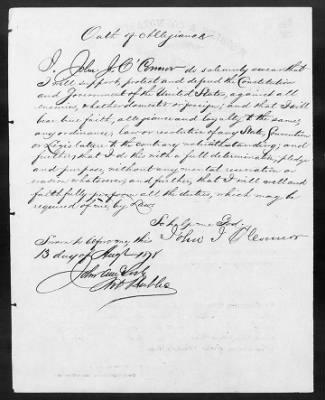 Oath of Allegiance
I, John J. O'Connor do solemnly swear that
I will support, protect and defend the Constitution
and Government of the United States, against all
enemies, whether domestic or foreign; and that I will
bear true faith, allegiance and loyalty to the same,
any ordinance, law or resolution of any State, Convention
or Legislature to the contrary notwithstanding; and
further, that I do this with a full determination, pledge
and purpose, without any mental reservation or
evasion whatsoever; and further, that I will well and
faithfully perform all the duties, which may be
required of me, by Law.
So help me God.
John J O'Connor
Sworn to before me this
13 day of Augt 1878